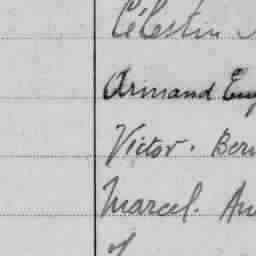 Célestin
Armand Eug
Victor. Bern
Marcel. Au